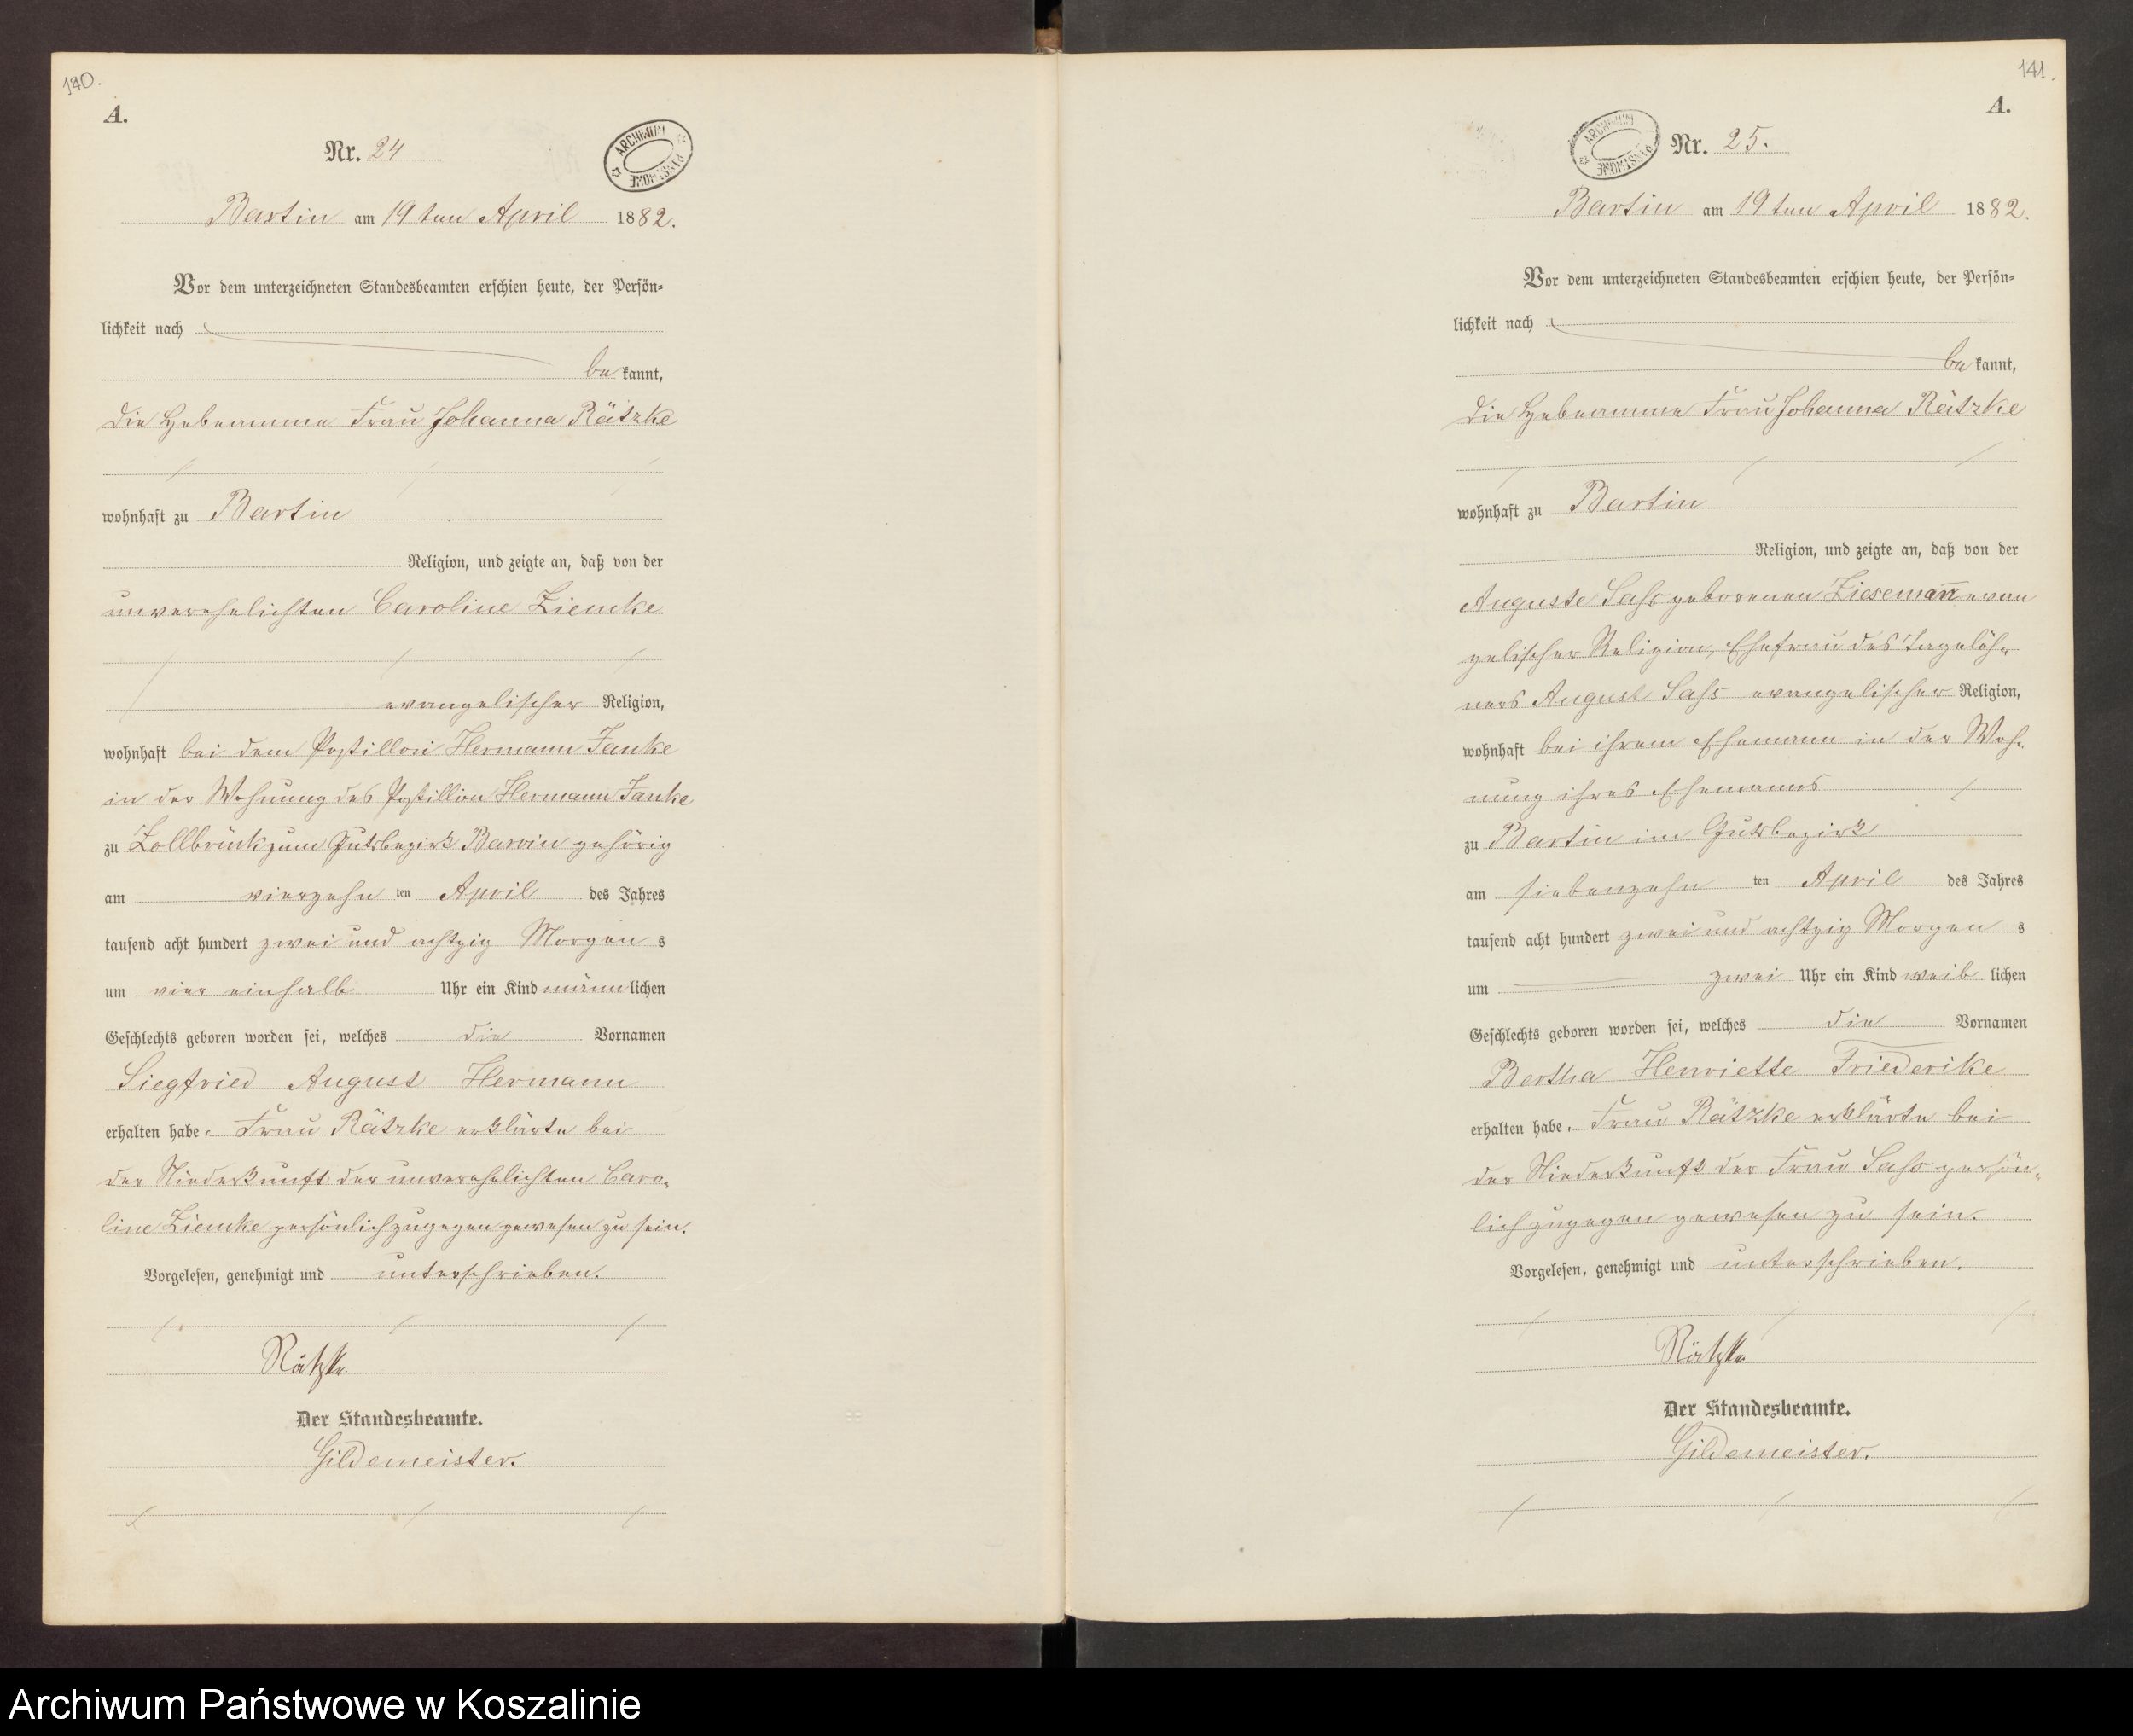 140.
A.
Nr. 24
ARCHIWUM PAŃSTWOWE
Bartin am 19ten April 1882.
Vor dem unterzeichneten Standesbeamten erschien heute, der Persön-
lichkeit nach
be kannt,
die Hebeamme Frau Johanna Rätzke
wohnhaft zu Bartin
Religion, und zeigte an, daß von der
unverehelichten Caroline Ziemke
evangelischer Religion,
wohnhaft bei dem Postillon Hermann Janke
in der Wohnung des Postillion Hermann Janke
zu Zollbrück zum Gutsbezirk Barvin gehörig
am vierzehn ten April des Jahres
tausend acht hundert zwei und achtzig Morgen s
um vier einhalb Uhr ein Kind männ lichen
Geschlechts geboren worden sei, welches die Vornamen
Siegfried August Hermann
erhalten habe. Frau Rätzke erklärte bei
der Niederkunft der unverehelichten Caro-
line Ziemke persönlich zugegen gewesen zu sein.
Vorgelesen, genehmigt und unterschrieben.
Rätzke
Der Standesbeamte.
Gildemeister.
141.
A.
ARCHIWUM PAŃSTWOWE
Nr. 25.
Bartin am 19ten April 1882.
Vor dem unterzeichneten Standesbeamten erschien heute, der Persön-
lichkeit nach
be kannt,
die Hebeamme Frau Johanna Rätzke
wohnhaft zu Bartin
Religion, und zeigte an, daß von der
Auguste Sahs geborenen Ziesemañ evan
gelischer Religion, Ehefrau des Tagelöh-
ners August Sahs evangelischer Religion,
wohnhaft bei ihrem Ehemann in der Woh-
nung ihres Ehemanns
zu Bartin im Gutsbezirk
am siebenzehn ten April des Jahres
tausend acht hundert zwei und achtzig Morgen s
um zwei Uhr ein Kind weib lichen
Geschlechts geboren worden sei, welches die Vornamen
Bertha Henriette Friederike
erhalten habe. Frau Rätzke erklärte bei
der Niederkunft der Frau Sahs persön-
lich zugegen gewesen zu sein.
Vorgelesen, genehmigt und unterschrieben.
Rätzke
Der Standesbeamte.
Gildemeister.
Archiwum Państwowe w Koszalinie